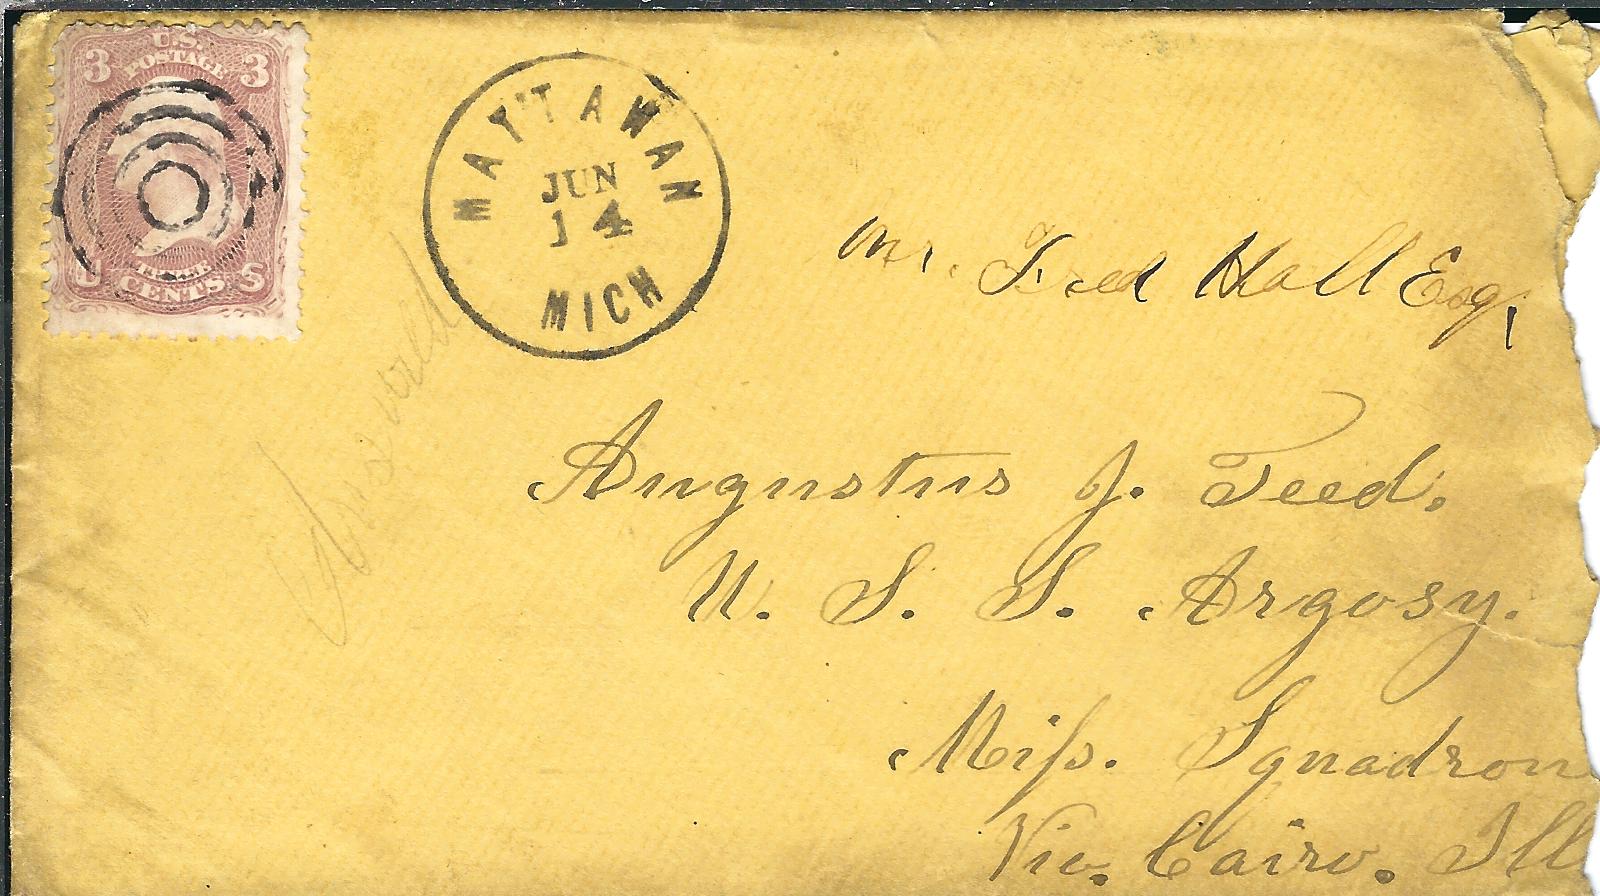 U.S.
POSTAGE
3 3
CENTS
MATTAWAN
JUN
14
MICH
Mr. Fred Hall Esq,
Augustus J. Teed.
U. S. S. Argosy.
Miſs. Squadron
Via. Cairo. Ill